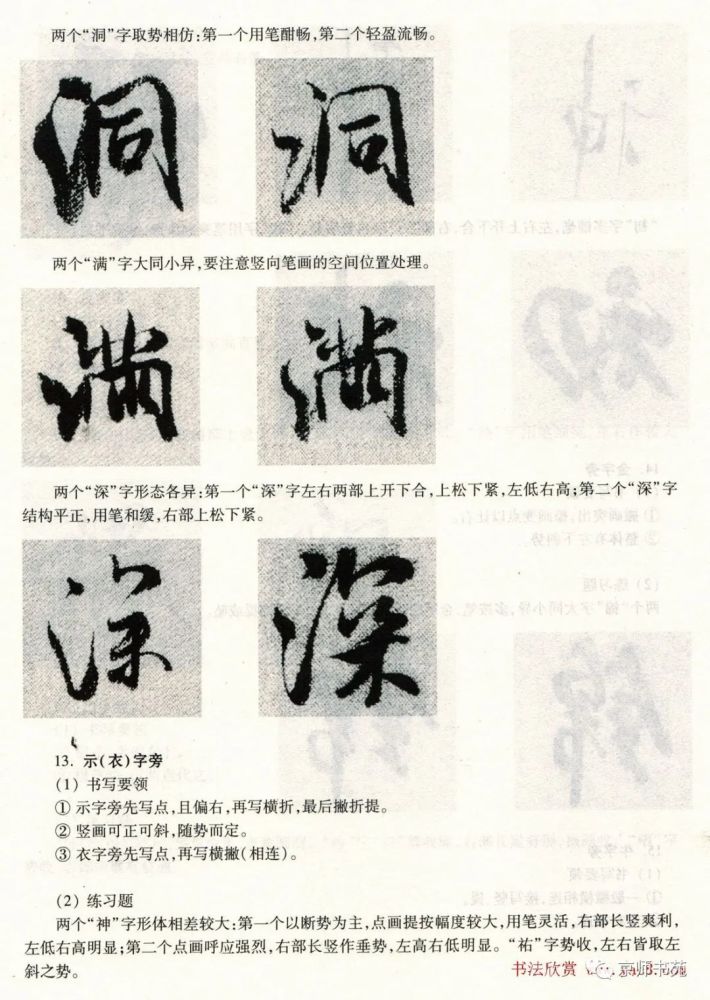 两个“洞”字取势相仿:第一个用笔酣畅,第二个轻盈流畅。
洞 洞
两个“满”字大同小异,要注意竖向笔画的空间位置处理。
满 满
两个“深”字形态各异:第一个“深”字左右两部上开下合,上松下紧,左低右高;第二个“深”字
结构平正,用笔和缓,右部上松下紧。
深 深
13. 示(衣)字旁
(1) 书写要领
① 示字旁先写点,且偏右,再写横折,最后撇折提。
② 竖画可正可斜,随势而定。
③ 衣字旁先写点,再写横撇(相连)。
(2) 练习题
两个“神”字形体相差较大:第一个以断势为主,点画提按幅度较大,用笔灵活,右部长竖爽利,
左低右高明显;第二个点画呼应强烈,右部长竖作垂势,左高右低明显。“祐”字势收,左右皆取左
斜之势。
书法欣赏
京师书苑